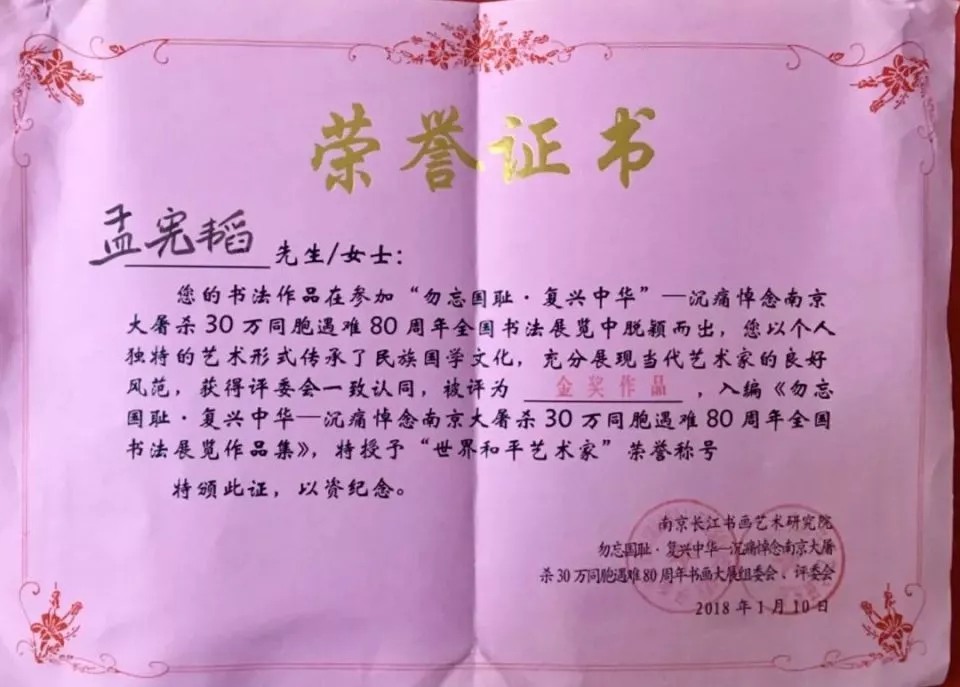 荣誉证书
孟宪韬 先生/女士：
您的书法作品在参加“勿忘国耻·复兴中华”—沉痛悼念南京
大屠杀30万同胞遇难80周年全国书法展览中脱颖而出，您以个人
独特的艺术形式传承了民族国学文化，充分展现当代艺术家的良好
风范，获得评委会一致认同，被评为 金奖作品 ，入编《勿忘
国耻·复兴中华—沉痛悼念南京大屠杀30万同胞遇难80周年全国
书法展览作品集》，特授予“世界和平艺术家”荣誉称号
特颁此证，以资纪念。
南京长江书画艺术研究院
勿忘国耻·复兴中华—沉痛悼念南京大屠
杀30万同胞遇难80周年书画大展组委会、评委会
2018年1月10日